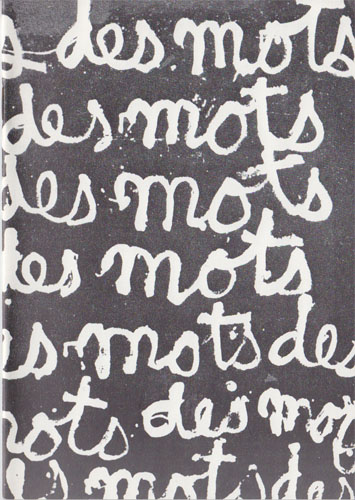 s des mots
des mots
des mots
des mots
des mots des
mots des mot
des mots des